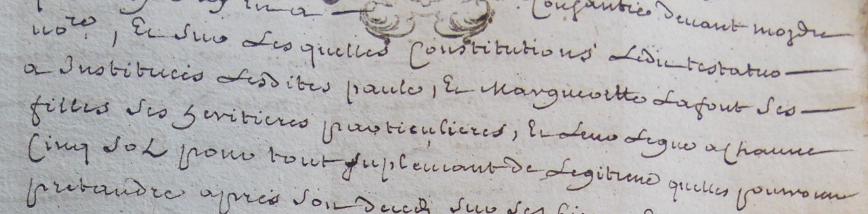 devant mozdit
no.re, Et sur Lesquelles Constitutions Ledit testateur
a Instituees Lesdites paule, Et Margueritte Lafont ses
filles ses heritieres particulieres, Et Leur Legue a chaune
Cinq sol pour tout suplemant de Legitime quelles pourroint
pretandre apres son deced sur ses